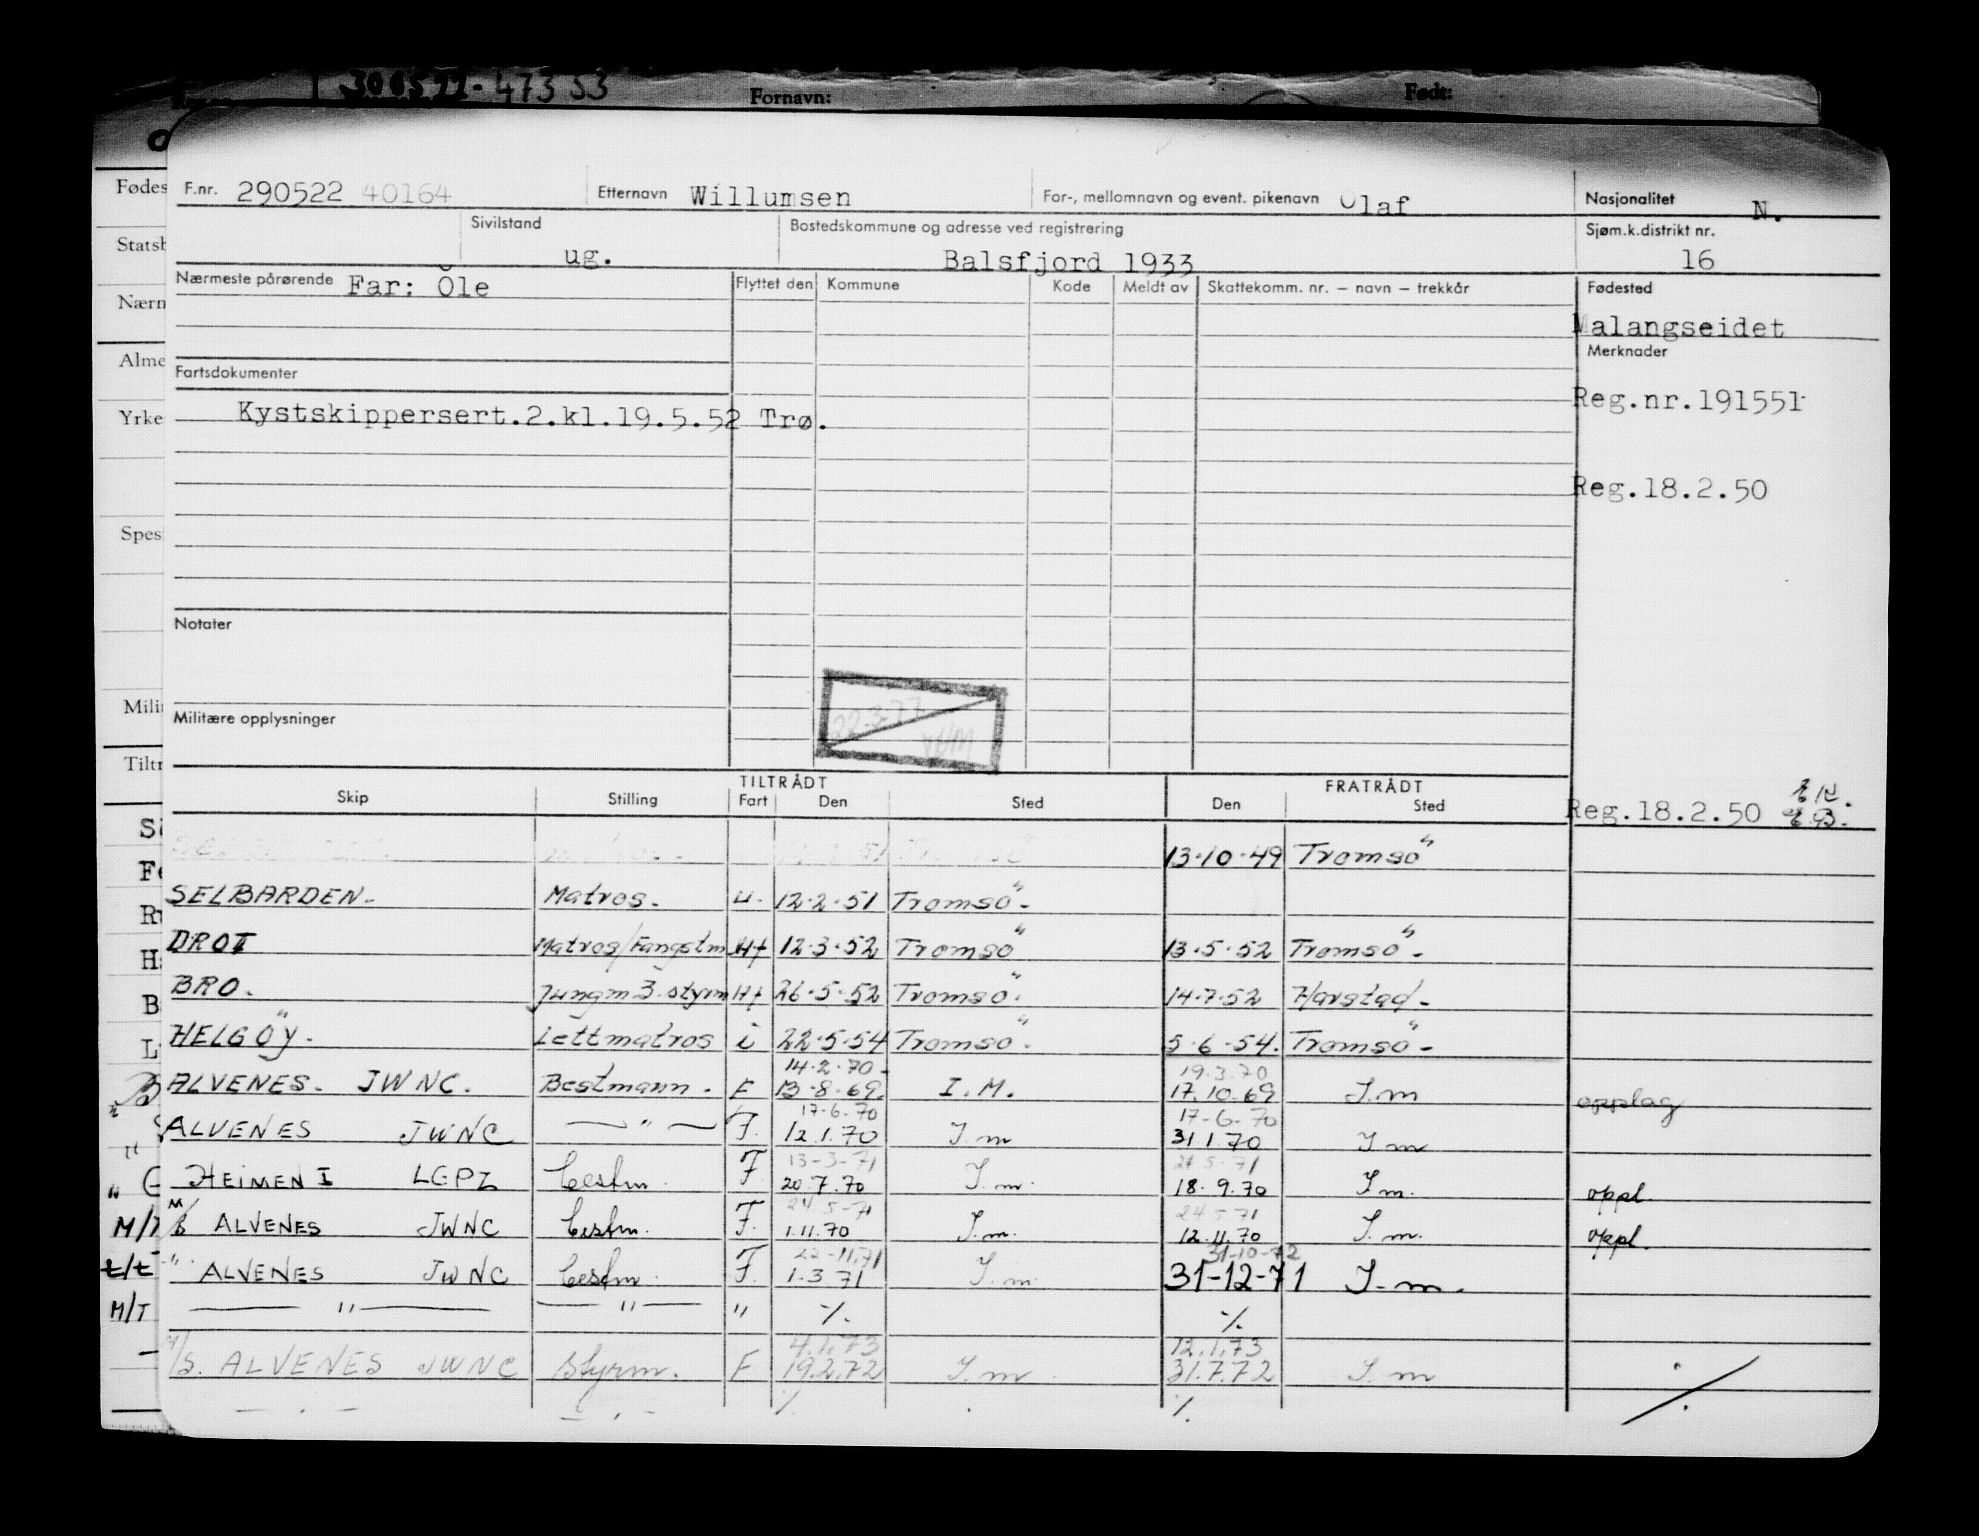 300522-47353
Fornavn: Født:
F.nr. 290522 40164 Etternavn Willumsen For-, mellomnavn og event. pikenavn Olaf Nasjonalitet N.
Fødes
Sivilstand ug. Bostedskommune og adresse ved registrering Balsfjord 1933 Sjøm.k.distrikt nr. 16
Statsb
Nærmeste pårørende Far: Ole Flyttet den Kommune Kode Meldt av Skattekomm. nr. – navn – trekkår Fødested
Nærn
Malangseidet
Alme
Merknader
Fartsdokumenter
Reg.nr.191551
Yrke
Kystskippersert.2.kl.19.5.52 Trø.
Reg.18.2.50
Spes
Notater
Mili
Militære opplysninger
22.3.77
Tiltr
TILTRÅDT FRATRÅDT
Skip Stilling Fart Den Sted Den Sted
Reg.18.2.50
13.10.49 Tromsö
SELBARDEN. Matros. U. 12.2.51 Tromsö.
DROT Matros/Fangstm Hf 12.3.52 Tromsö 13.5.52 Tromsö.
BRO. Jungm 3. styrm Hf 26.5.52 Tromsö. 14.7.52 Harstad.
HELGÖY. Lettmatros i 22.5.54 Tromsö. 5.6.54. Tromsö.
14.2.70 19.3.70
ALVENES. JWNC. Bestmann. F 13.8.69. I.M. 17.10.69 I.m opplag
17-6-70 17-6-70
ALVENES JWNC — " — F. 12.1.70 I.m 31.1.70 I.m
13-3-71 21-5-71
" HEIMEN I LGPZ bestm. F 20.7.70 I.m. 18.9.70 I.m. oppl.
24-5-71 24.5.71
M/S ALVENES JWNC bestm. F. 1.11.70 I.m. 12.11.70 I.m. oppl.
22-11.71 31-10-72
" ALVENES JWNC bestm. F. 1.3.71 I.m. 31-12-71 I.m.
M/T — " — — " — " ./. ./.
4.1.73 12.1.73
M/S. ALVENES JWNC Styrm. F 19.2.72 I.m. 31.7.72 I.m ./.
— . — — . — ./. ./.